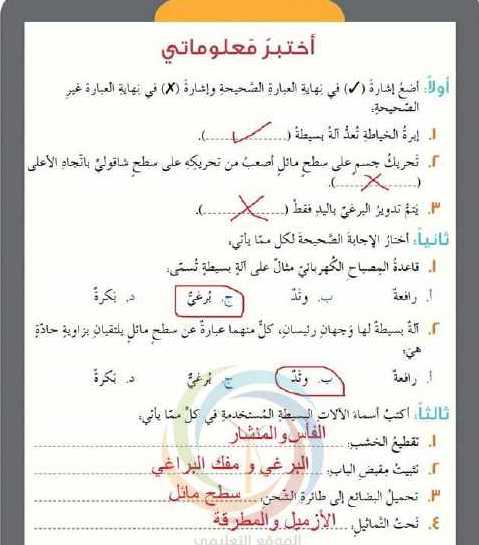 أختبرُ مَعلوماتي
أولاً: أضعُ إشارةَ (✓) في نِهايةِ العبارةِ الصَّحيحةِ وإشارةَ (✗) في نِهايةِ العبارة غيرِ
الصَّحيحةِ:
١. إبرةُ الخياطةِ تُعدُّ آلةً بسيطةً (.....✓.....).
٢. تَحريكُ جسمٍ على سطحٍ مائلٍ أصعبُ من تحريكِهِ على سطحٍ شاقوليٍّ باتِّجاهِ الأعلى
(.....✗.....).
٣. يَتمُّ تدويرُ البرغيّ باليدِ فقطْ (.....✗.....).
ثانياً: أختارُ الإجابةَ الصَّحيحةَ لكلٍ ممّا يأتي:
١. قاعدةُ المِصباحِ الكهربائيّ مثالٌ على آلةٍ بسيطةٍ تُسمّى:
أ. رافعةٌ ب. وتَدٌ ج. بُرغيٌّ د. بَكرةٌ
٢. آلةٌ بسيطةٌ لها وَجهانِ رئيسانِ، كلٌّ منهما عبارةٌ عن سطحٍ مائلٍ يلتقيانِ بزاويةٍ حادّةٍ
هيَ:
أ. رافعةٌ ب. وتَدٌ ج. بُرغيٌّ د. بَكرةٌ
ثالثاً: أكتبُ أسماءَ الآلاتِ البسيطةِ المُستخدمةِ في كلٍّ ممّا يأتي:
١. تقطيعُ الخشبِ: الفأس والمنشار
٢. تثبيتُ مِقبضِ البابِ: البرغي و مفك البراغي
٣. تحميلُ البضائعِ إلى طائرةِ الشّحنِ: سطح مائل
٤. نَحتُ التَّماثيلِ: الأزميل والمطرقة
الموقع التعليمي